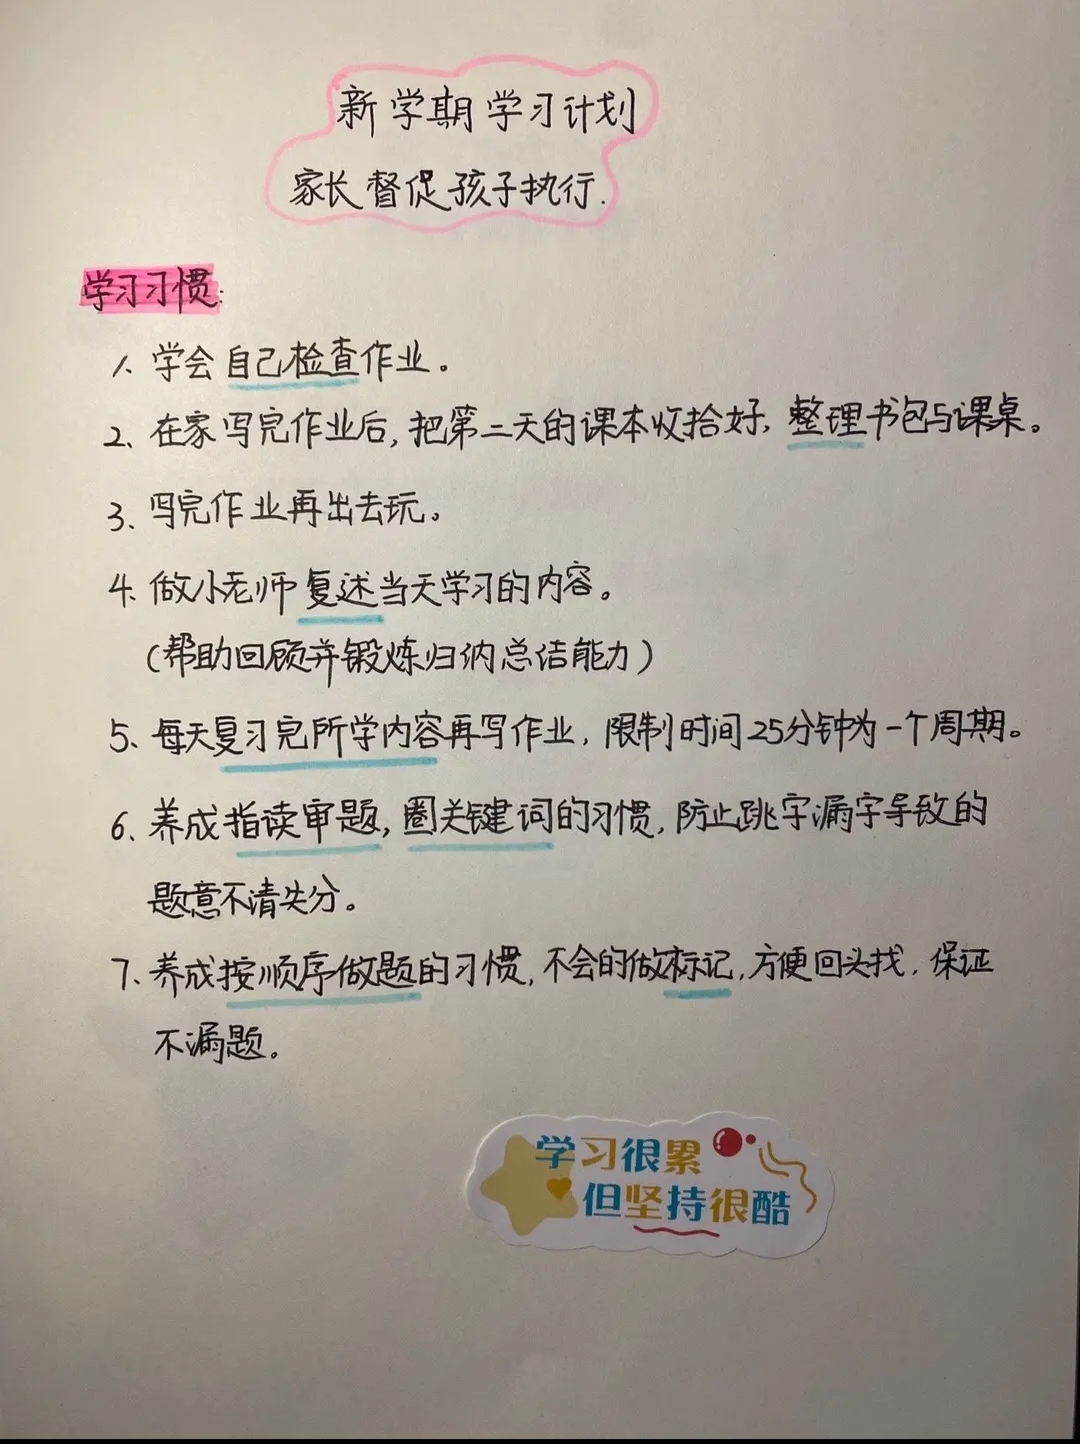 新学期学习计划
家长督促孩子执行.
学习习惯:
1、学会自己检查作业。
2、在家写完作业后,把第二天的课本收拾好,整理书包与课桌。
3、写完作业再出去玩。
4、做小老师复述当天学习的内容。
(帮助回顾并锻炼归纳总结能力)
5、每天复习完所学内容再写作业,限制时间25分钟为一个周期。
6、养成指读审题,圈关键词的习惯,防止跳字漏字导致的
题意不清失分。
7、养成按顺序做题的习惯,不会的做标记,方便回头找,保证
不漏题。
学习很累
但坚持很酷